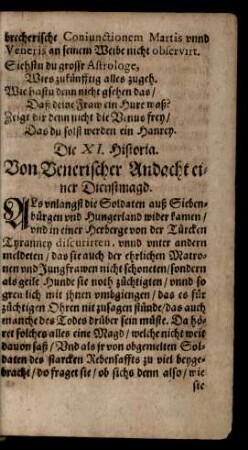 brecherische Coniunctionem Martis vnnd
Veneris an seinem Weibe nicht observirt.
Sichstu du grosr Astrologe,
Wies zukünfftig alles zugeh.
Wie hastu denn nicht gsehen das/
Daß deine Fraw ein Hure waß?
Zeigt dir denn nicht die Venus frey/
Das du solst werden ein Hanrey.
Die XI. Historia.
Von Venerischer Andacht ei-
ner Dienstmagd.
Als vnlangst die Soldaten auß Sieben-
bürgen vnd Hungerland wider kamen/
vnd in einer Herberge von der Türcken
Tyranney discurirten, vnnd vnter andern
meldeten/ das sie auch der ehrlichen Matro-
nen vnd Jungfrawen nicht schoneten/ sondern
als geile Hunde sie noth züchtigten/ vnnd so
greulich mit jhnen vmbgiengen/ das es für
züchtigen Ohren nit zusagen stünde/ das auch
manche des Todes drüber sein müste. Da hö-
ret solches alles eine Magd/ welche nicht weit
dauon saß/ Vnd als jr von obgemelten Sol-
daten des starcken Rebensaffts zu viel beyge-
bracht/ do fraget sie/ ob sichs denn also/ wie
sie